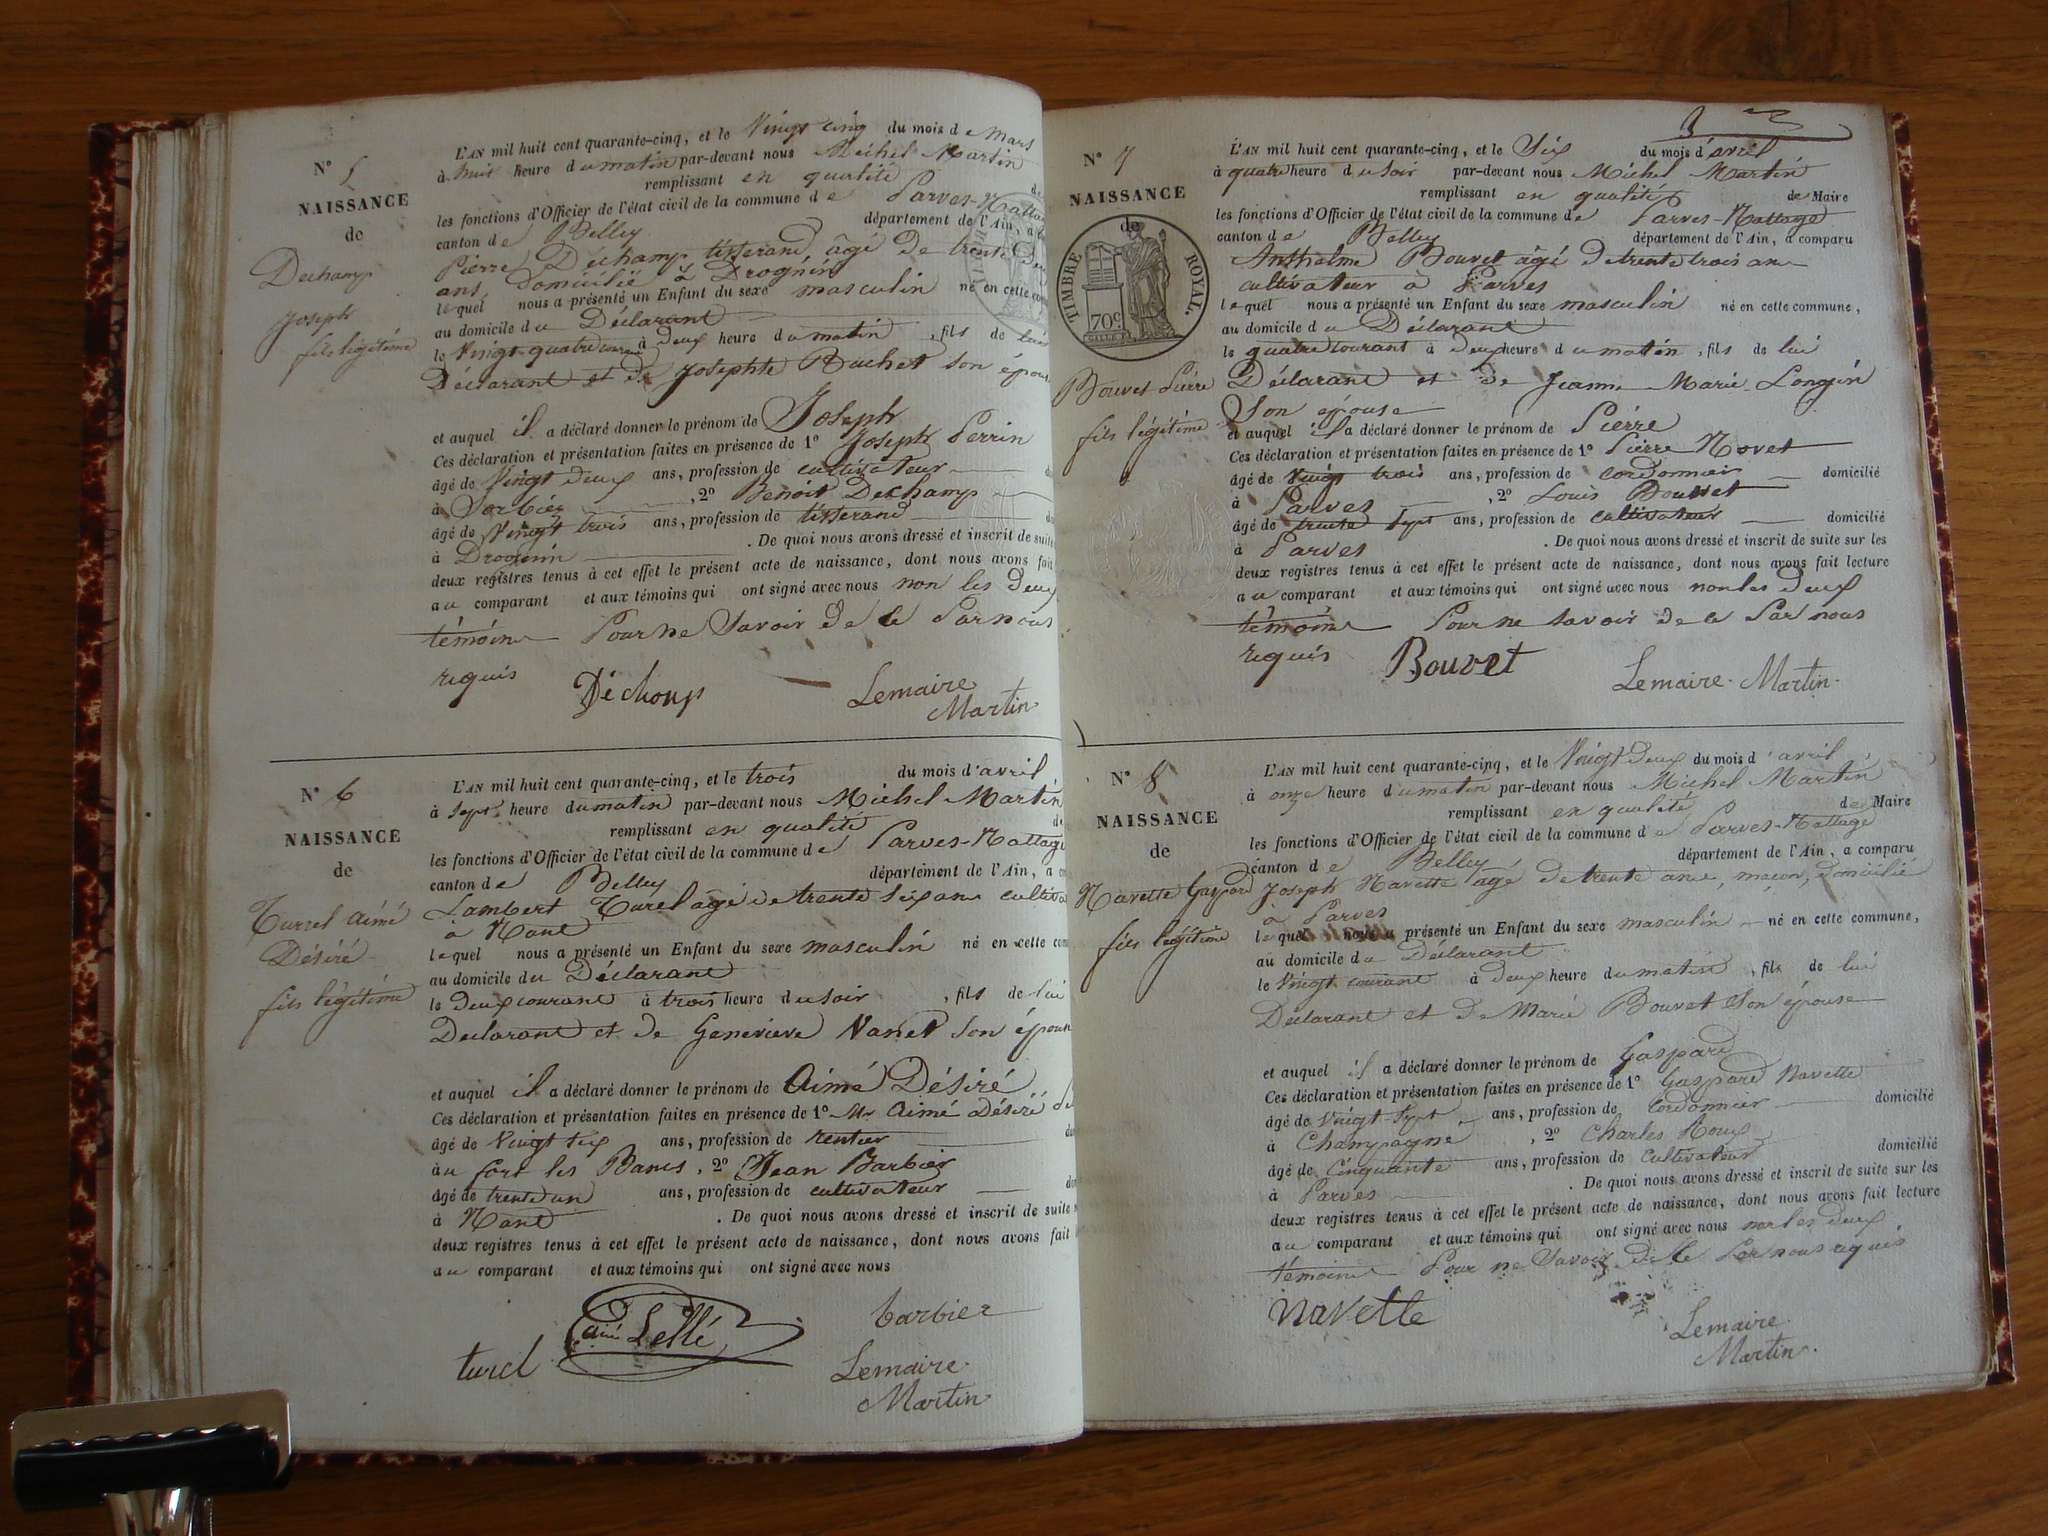 N° 5
NAISSANCE
de
Dechamp
Joseph
fils légitime
L'AN mil huit cent quarante-cinq, et le Vingt cinq du mois de Mars
à huit heure du matin par-devant nous Michel Martin
remplissant en qualité de
les fonctions d'Officier de l'état civil de la commune de Parves-Nattage
canton de Belley département de l'Ain, a
Pierre Dechamp tisserand âgé de trente
ans, domicilié à Drognin
lequel nous a présenté un Enfant du sexe masculin né en cette
au domicile du Déclarant
le Vingt-quatre courant à deux heure du matin, fils de lui
Déclarant et de Josephte Ruchet son épouse
et auquel il a déclaré donner le prénom de Joseph
Ces déclaration et présentation faites en présence de 1° Joseph Perrin
âgé de Vingt deux ans, profession de cultivateur
à Sorbier, 2° Benoit Dechamp
âgé de Vingt trois ans, profession de tisserand
à Drognin. De quoi nous avons dressé et inscrit de suite
deux registres tenus à cet effet le présent acte de naissance, dont nous avons fait
au comparant et aux témoins qui ont signé avec nous non les deux
témoins Pour ne Savoir de ce Par nous
requis
Déchamp Lemaire
Martin
N° 6
NAISSANCE
de
Turrel Aimé
Désiré
fils légitime
L'AN mil huit cent quarante-cinq, et le trois du mois d'avril
à Sept heure du matin par-devant nous Michel Martin
remplissant en qualité de
les fonctions d'Officier de l'état civil de la commune de Parves-Nattage
canton de Belley département de l'Ain, a
Lambert Turel âgé de trente six ans
à Nant
lequel nous a présenté un Enfant du sexe masculin né en cette
au domicile du Déclarant
le deux courant à trois heure du soir, fils de lui
Déclarant et de Genevieve Vanet Son épouse
et auquel il a déclaré donner le prénom de Aimé Désiré
Ces déclaration et présentation faites en présence de 1° Mr Aimé Désiré
âgé de Vingt six ans, profession de rentier
au fort les Bancs, 2° Jean Barbier
âgé de trente un ans, profession de cultivateur
à Nant. De quoi nous avons dressé et inscrit de suite
deux registres tenus à cet effet le présent acte de naissance, dont nous avons fait
au comparant et aux témoins qui ont signé avec nous
barbier
turel Lemaire
Martin
3
N° 7
NAISSANCE
de
TIMBRE ROYAL.
70c
Bouvet Pierre
fils légitime
L'AN mil huit cent quarante-cinq, et le Six du mois d'avril
à quatre heure du soir par-devant nous Michel Martin
remplissant en qualité de Maire
les fonctions d'Officier de l'état civil de la commune de Parves-Nattage
canton de Belley département de l'Ain, a comparu
Anthelme Bouvet âgé de trente trois ans
cultivateur à Parves
lequel nous a présenté un Enfant du sexe masculin né en cette commune,
au domicile du Déclarant
le quatre courant à deux heure du matin, fils de lui
Déclarant et de Jeanne Marie Longin
Son épouse
et auquel il a déclaré donner le prénom de Pierre
Ces déclaration et présentation faites en présence de 1° Pierre Novet
âgé de Vingt trois ans, profession de cordonnier domicilié
à Parves, 2° Louis Bouvet
âgé de trente Sept ans, profession de cultivateur domicilié
à Parves. De quoi nous avons dressé et inscrit de suite sur les
deux registres tenus à cet effet le présent acte de naissance, dont nous avons fait lecture
au comparant et aux témoins qui ont signé avec nous non les deux
témoins Pour ne savoir de ce Par nous
requis Bouvet Lemaire Martin
N° 8
NAISSANCE
de
Navette Gaspard
fils légitime
L'AN mil huit cent quarante-cinq, et le Vingt deux du mois d'avril
à onze heure du matin par-devant nous Michel Martin
remplissant en qualité de Maire
les fonctions d'Officier de l'état civil de la commune de Parves-Nattage
canton de Belley département de l'Ain, a comparu
Joseph Navette âgé de trente ans, maçon, domicilié
à Parves
lequel nous a présenté un Enfant du sexe masculin né en cette commune,
au domicile du Déclarant
le Vingt courant à deux heure du matin, fils de lui
Déclarant et de Marie Bouvet Son épouse
et auquel il a déclaré donner le prénom de Gaspard
Ces déclaration et présentation faites en présence de 1° Gaspard Navette
âgé de Vingt-Sept ans, profession de Cordonnier domicilié
à Champagne, 2° Charles Roux
âgé de Cinquante ans, profession de Cultivateur domicilié
à Parves. De quoi nous avons dressé et inscrit de suite sur les
deux registres tenus à cet effet le présent acte de naissance, dont nous avons fait lecture
au comparant et aux témoins qui ont signé avec nous non les deux
témoins Pour ne Savoir de ce Par nous requis
navette Lemaire
Martin